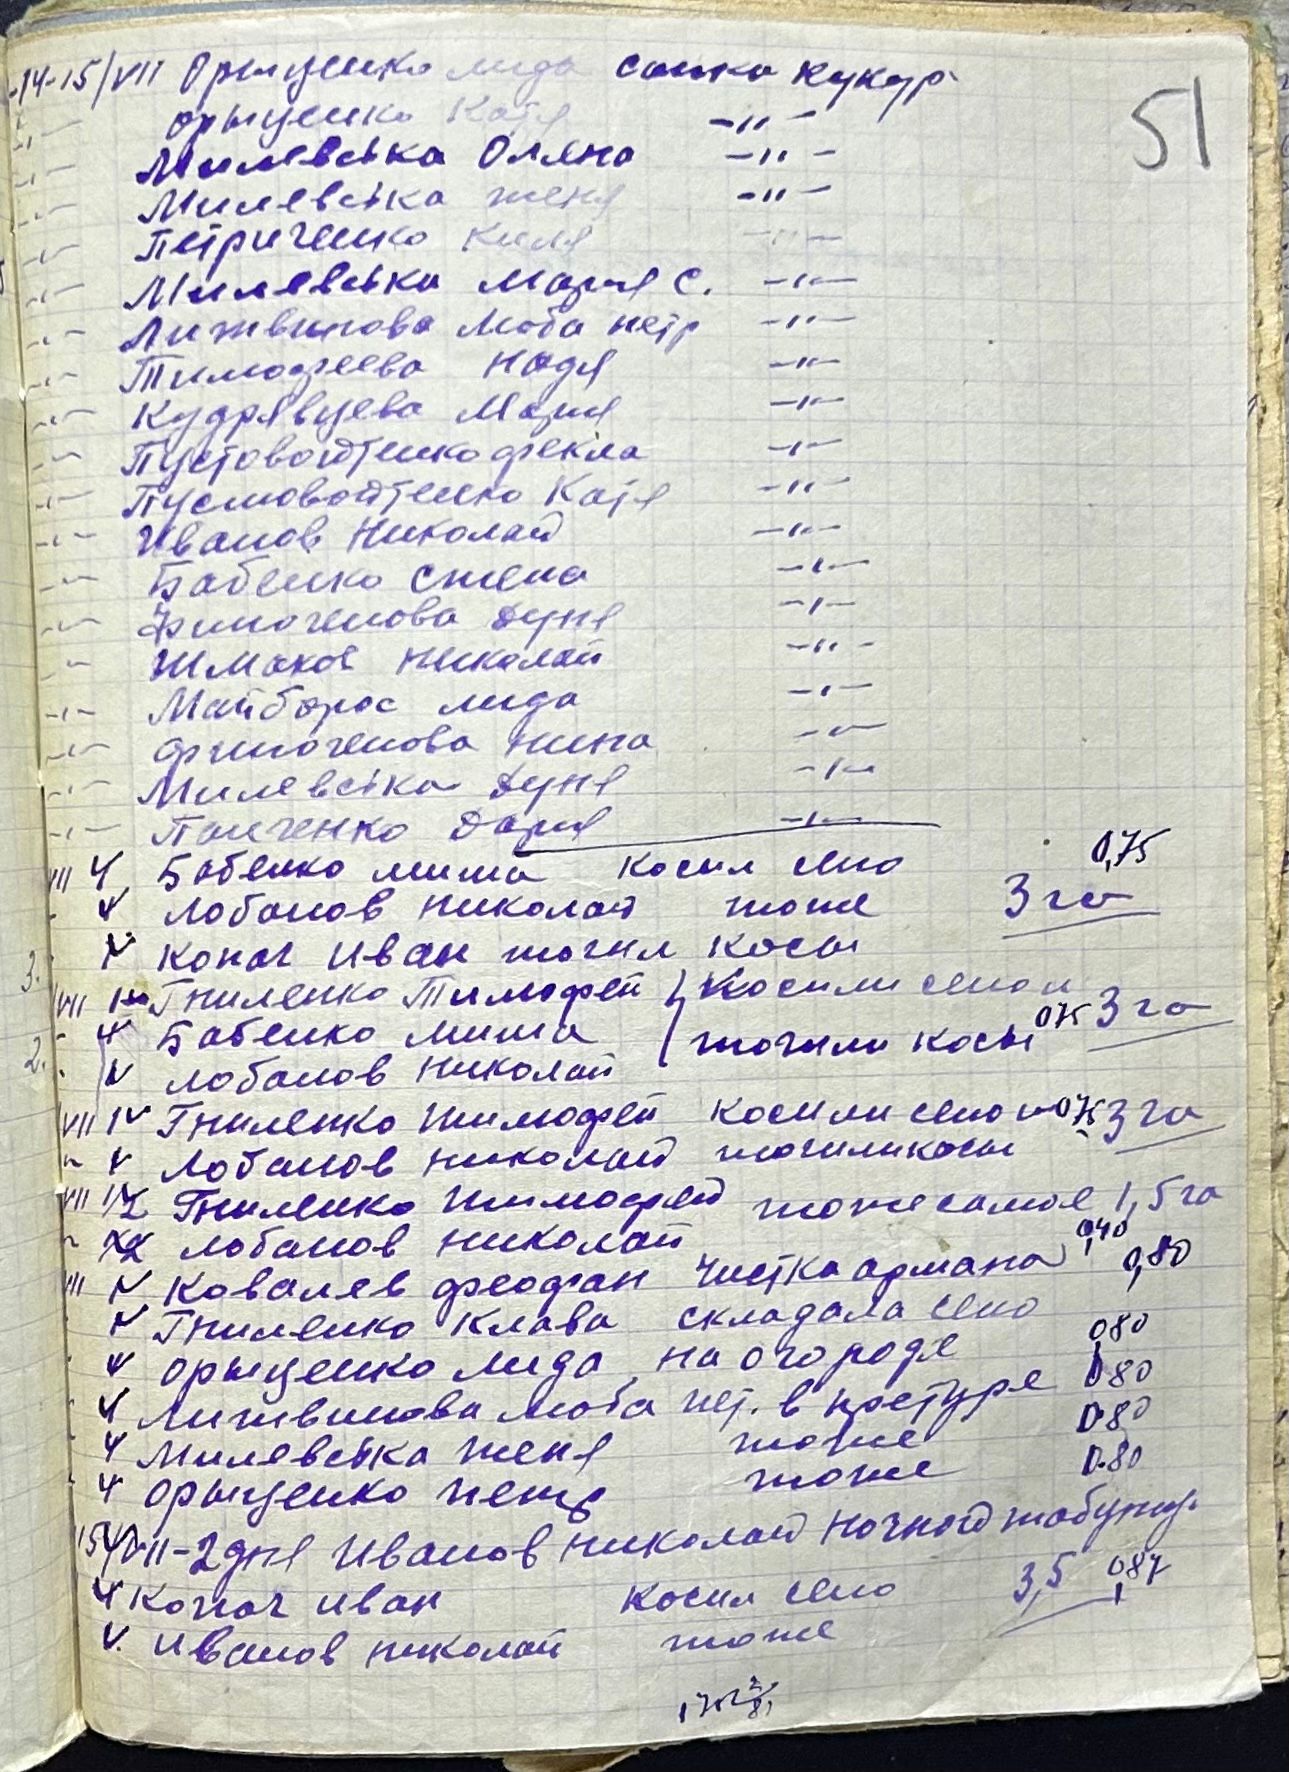 51
14-15/VII Орыщенко лида сапка кукур
-"- орыщенко Катя -"-
-"- Милевська Оляна -"-
-"- Милевська женя -"-
-"- Петриченко Киля -"-
-"- Милевська Мария С. -"-
-"- Литвинова Люба петр -"-
-"- Тимофеева Надя -"-
-"- Кудрявцева Мария -"-
-"- Пустовойтенко фекла -"-
-"- Пустовойтенко Катя -"-
-"- Иванов Николай -"-
-"- Бабенко Степа -"-
-"- Финогенова Дуня -"-
-"- Шмаков Николай -"-
-"- Майборос лида -"-
-"- финогенова нина -"-
-"- Милевська Дуня -"-
-"- Панченко Дария -"-
Бабенко миша косил сено 0,75
лобанов николай тоже 3 га
Конач Иван точил косы
VII Гниленко Тимофей Косили сено и
Бабенко миша точили косы 075 3 га
лобанов николай
VII Гниленко тимофей косили сено и 075 3 га
-"- лобанов николай точили косы
VII Гниленко тимофей тоже самое 1,5 га
-"- лобанов николай
Ковалев феофан чистка армана 040 0,80
Гниленко Клава складала сено
орыщенко лида на огороде 080
Литвинова люба пет. в 080
Милевська женя тоже 0.80
орыщенко петр тоже 0.80
15/VII-2 дня Иванов николай ночной
Конач иван косил сено 3,5 087
Иванов николай тоже